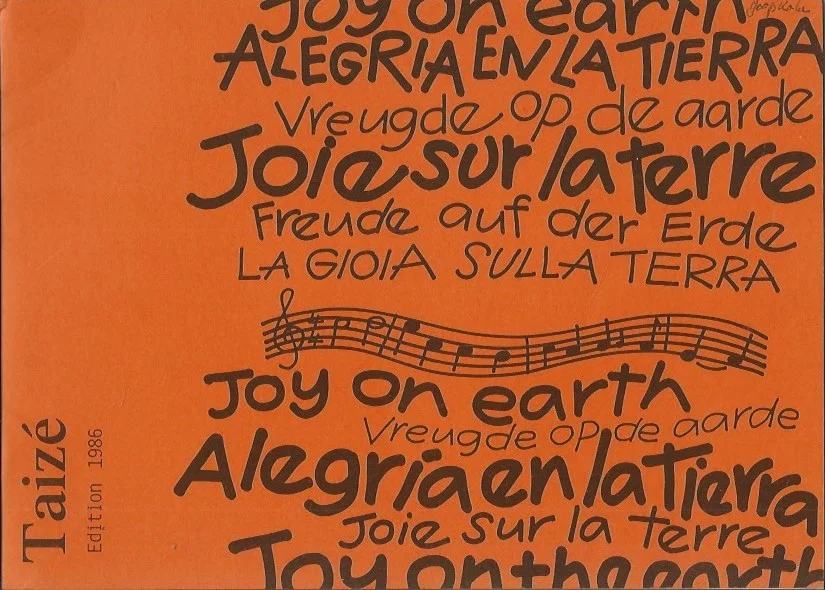 Joy on earth
ALEGRIA EN LA TIERRA
Vreugde op de aarde
Joie sur la terre
Freude auf der Erde
LA GIOIA SULLA TERRA
Joy on earth
Vreugde op de aarde
Alegría en la Tierra
Joie sur la terre
Joy on the earth
Taizé
Edition 1986